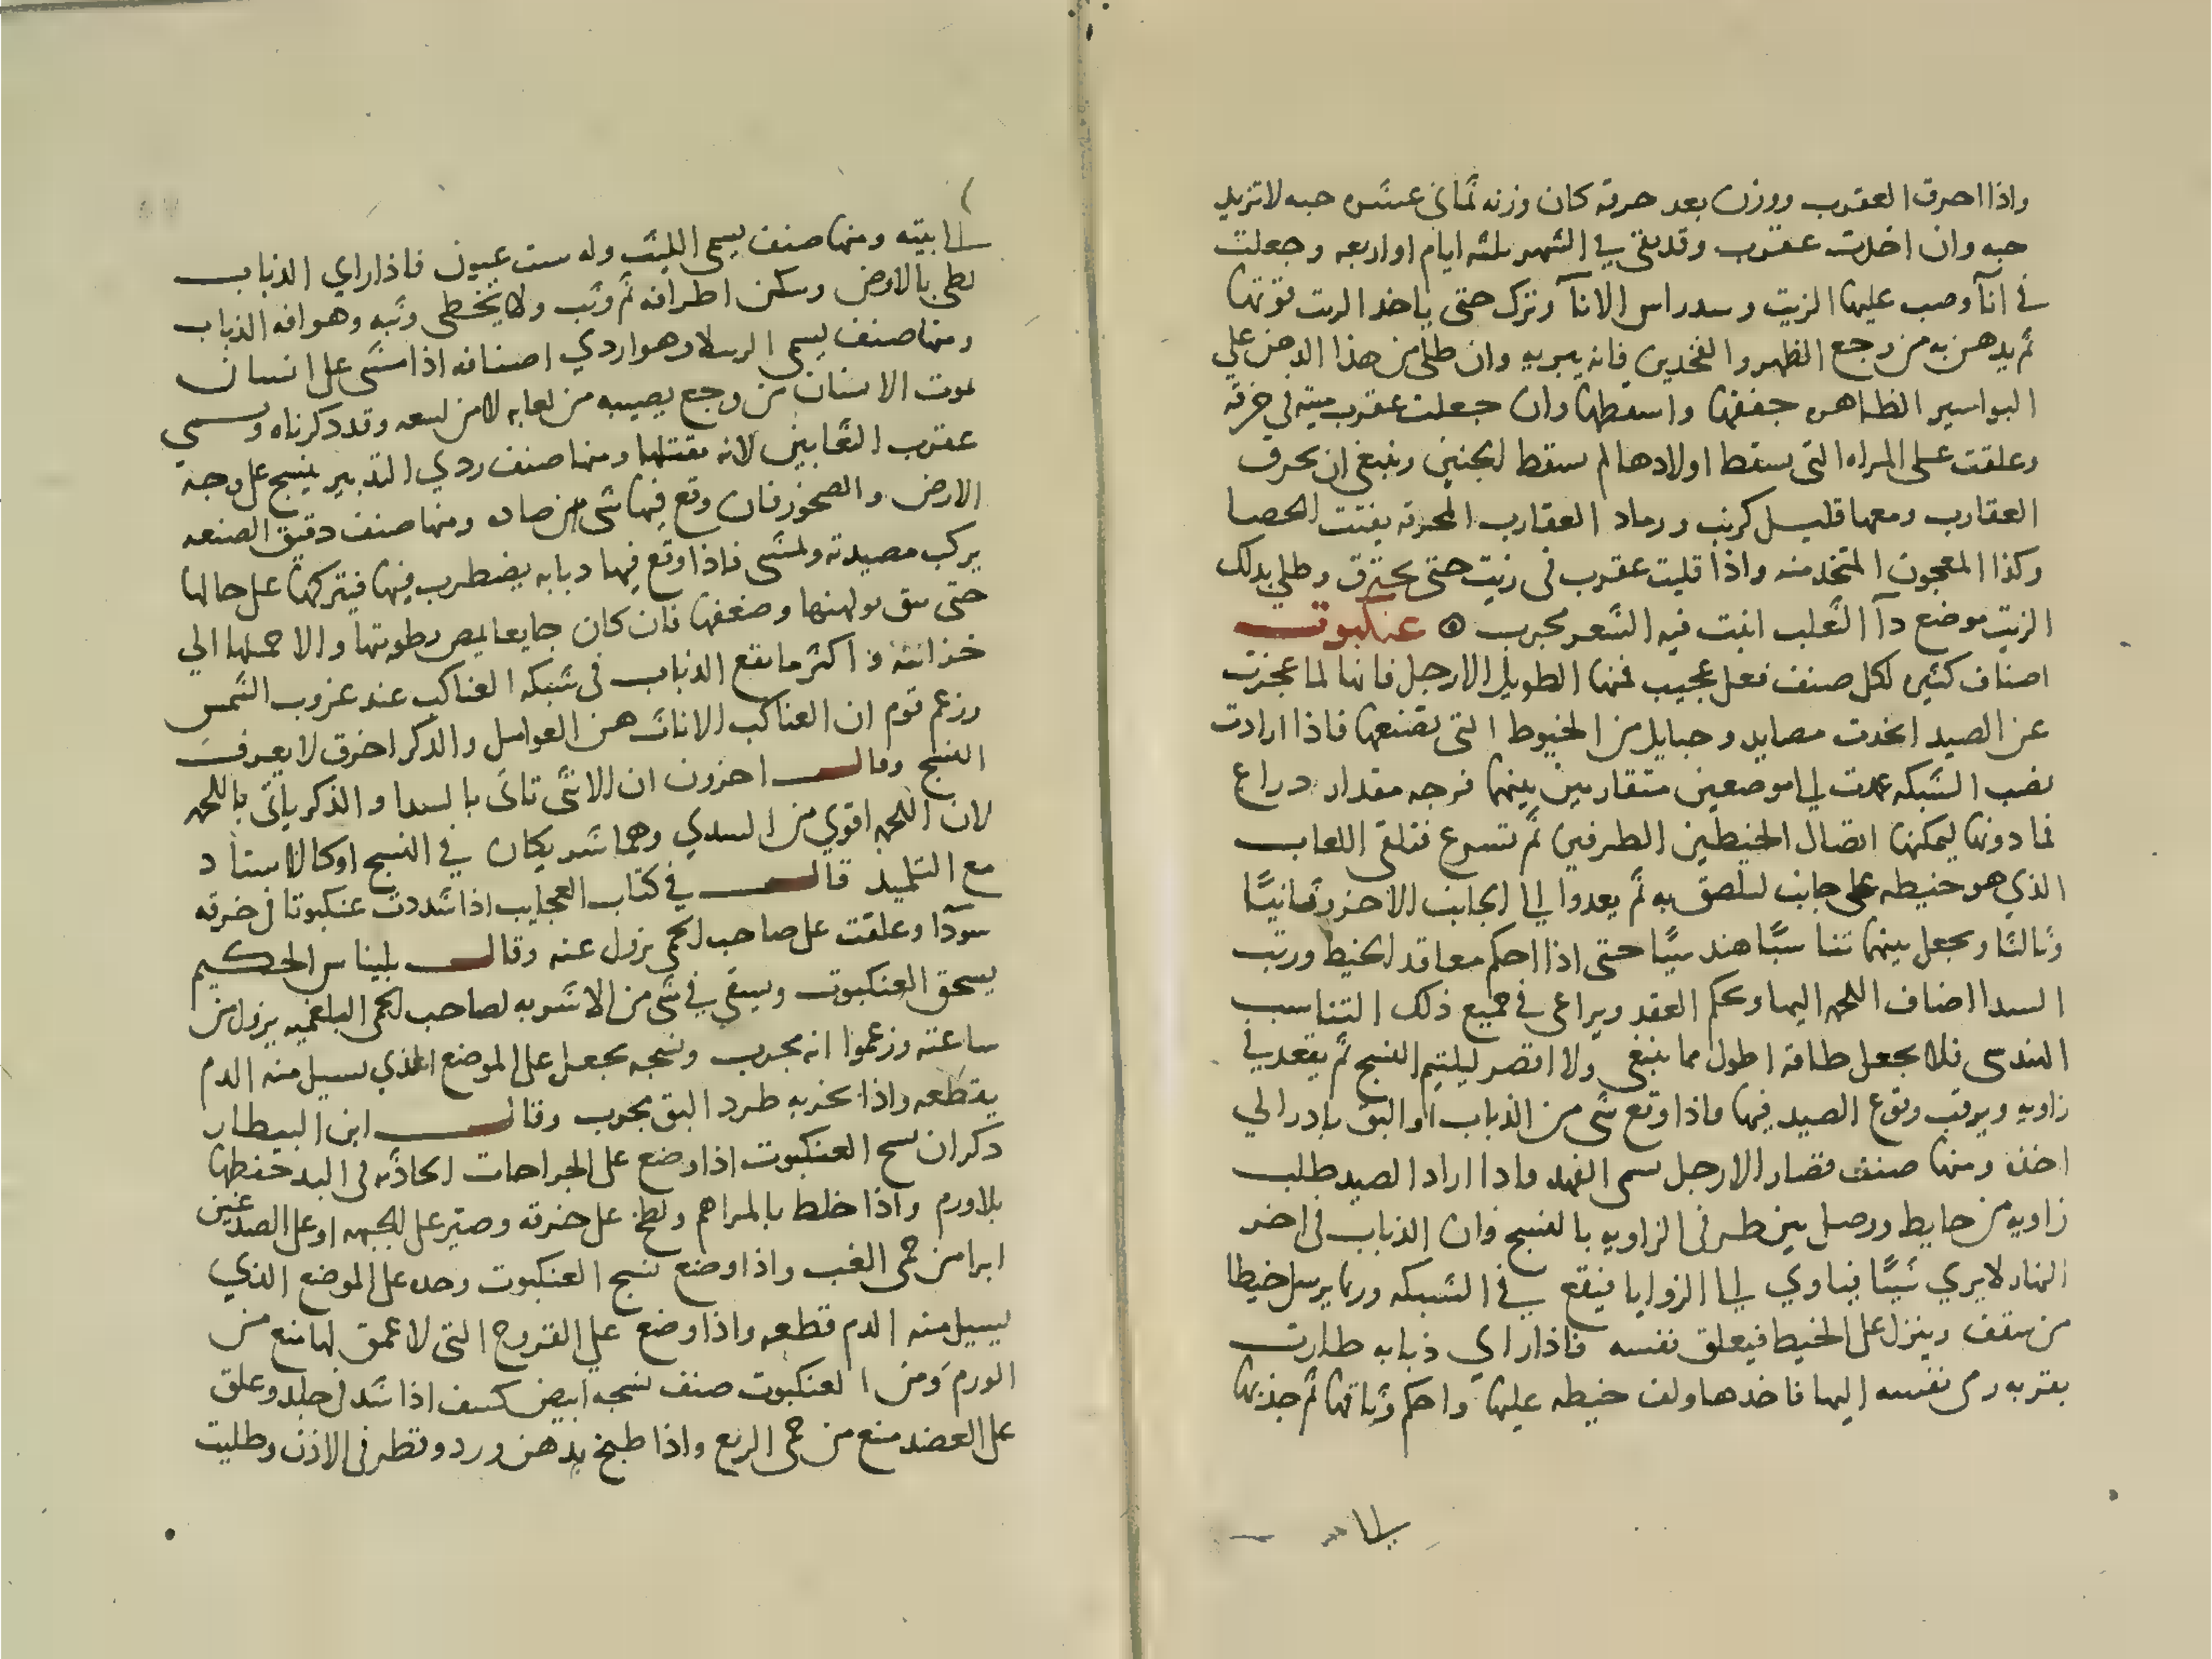 واذا احرق العقرب ووزن بعد حرقه كان وزنه ثماني عشره حبه لا تزيد
حبه وان اخذت عقرب وقد بقي في الشهر ثلثه ايام او اربعه وجعلت
في انآ وصب عليها الزيت وسد راس الانآ وترك حتى ياخد الزيت قوتها
ثم يدهن به من وجع الظهر والفخدين فانه يبريه وان طلي من هذا الدهن علي
البواسير الظاهره جففها واسقطها وان جعلت عقرب ميته في خرقه
وعلقت على المراه التي يسقط اولادها لم يسقط الجنين وينبغي ان يحرق
العقارب ومعها قليل كرنب ورماد العقارب المحرقه يفتت الحصا
وكذا المعجون المتخذ منه واذا قليت عقرب في زيت حتى يحترق وطلي بدلك
الزيت موضع دآ الثعلب انبت فيه الشعر مجرب ۞ عنكبوت
اصناف كثيره لكل صنف فعل عجيب فمنها الطويل الارجل فانها لما عجزت
عن الصيد اتخدت مصايد وحبايل من الخيوط التي تصنعها فاذا ارادت
نصب الشبكه عمدت الى موضعين متقاربين بينهما فرجه مقدار دراع
فما دونها ليمكنها اتصال الخيطين الطرفين ثم تسرع فتلقي اللعاب
الذي هو خيطه على جانب لتلصق به ثم يعدوا الى الجانب الاخر وثانيًا
وثالثا ويجعل بينهما تناسبًا هندسيًا حتى اذا احكم معاقد الخيط ورتب
السدا اضاف اللحمه اليها ويحكم العقد ويراعي في جميع ذلك التناسب
الهندسى فلا يجعل طاقه اطول مما ينبغي ولا اقصر ليلتيم النسج ثم يقعد في
زاويه ويرقب وقوع الصيد فيها فاذا وقع شى من الذباب او البق بادر الي
اخذه ومنها صنف قصار الارجل يسمى الفهد فادا اراد الصيد طلب
زاويه من حايط ووصل بين طرفى الزاويه بالنسج فان الذباب في اخر
النهار لا يري شيئًا فياوي الى الزوايا فيقع في الشبكه وربما يرسل خيطا
من سقف وينزل على الخيط فيعلق نفسه فاذا راي ذبابه طارت
بقربه رمى نفسه اليها فاخدها ولف خيطه عليها واحكم وثاقها ثم جذبها
الى
الى بيته ومنها صنف يسمى الليث وله ست عيون فاذا راي الذباب
لطي بالارض وسكن اطرافه ثم وثب ولا يخطي وثبه وهو افه الذباب
ومنها صنف يسمي الرتيلا وهو اردي اصنافه اذا مشى على انسان
يموت الانسان من وجع يصيبه من لعابه لا من لسعه وقد دكرناه ويسمى
عقرب الثعابين لانه يقتلها ومنها صنف ردي التدبير ينسج على وجه
الارض والصخور فان وقع فيها شي صاده ومنها صنف دقيق الصنعه
يركب مصيدته ويمشي فاذا وقع فيها دبابه يضطرب فيها فيتركها على حالها
حتى يثق بوهنها وضعفها فان كان جايعا يمص رطوبتها والا حملها الي
خزانته واكثر ما يقع الذباب في شبكه العناكب عند غروب الشمس
وزعم قوم ان العناكب الاناث هن العواسل والدكر اخرق لا يعرف
النسج وقال اخرون ان الانثى تاتى بالسدا والذكر ياتى باللحمه
لان اللحمه اقوي من السدي وهما شريكان في النسج او كالاستاد
مع التلميذ قال في كتاب العجايب اذا شددت عنكبوتا في خرقه
سودآ وعلقت على صاحب الحمى يزول عنه وقال بليناس الحكيم
يسحق العنكبوت ويسقي في شى من الاشربه لصاحب الحمى البلغميه يزول من
ساعته وزعموا انه مجرب ونسجه يجعل على الموضع الذي يسيل منه الدم
يقطعه واذا بخر به طرد البق مجرب وقال ابن البيطار
دكر ان نسج العنكبوت اذا وضع على الجراحات الحادثه في البدن حفظها
بلا ورم واذا خلط بالمراهم ولطخ على خرقه وصير على الجبهه او على الصدغين
ابرا من حمى الغب واذا وضع نسج العنكبوت وحده على الموضع الذي
يسيل منه الدم قطعه واذا وضع علي القروح التى لا عمق لها منع من
الورم ومن العنكبوت صنف نسجه ابيض كثيف اذا شد في جلد وعلق
على العضد منع من حمى الربع واذا طبخ بدهن ورد وقطر في الاذن وطليت